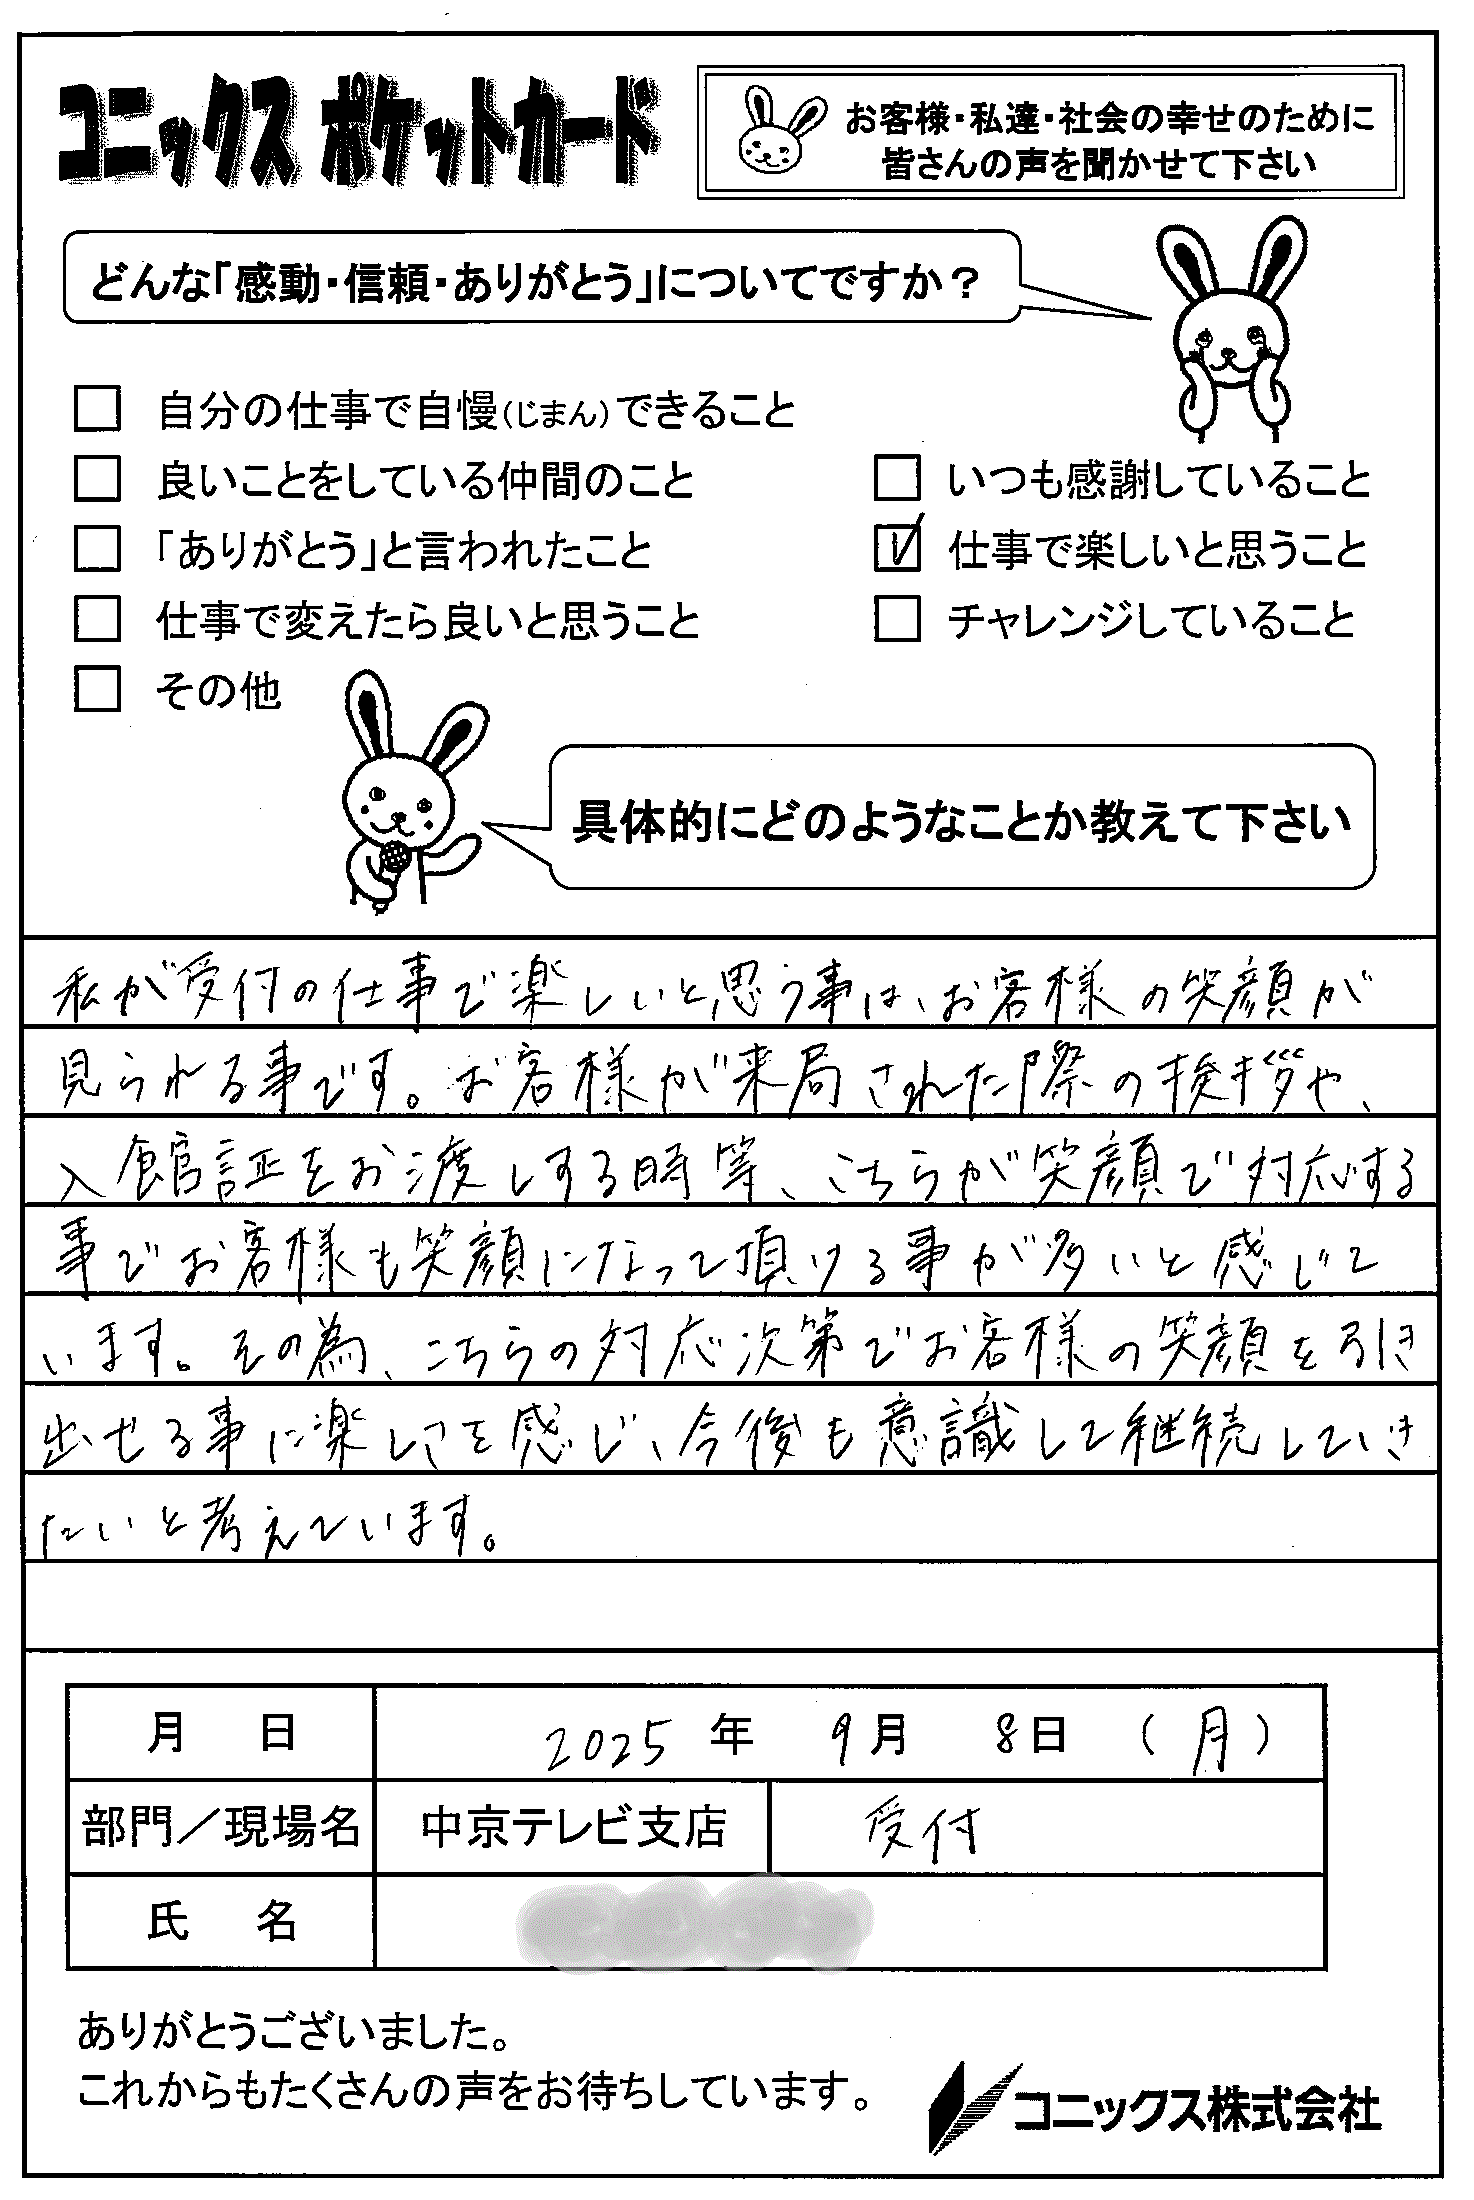 コニックス ポケットカード
お客様・私達・社会の幸せのために
皆さんの声を聞かせて下さい
どんな「感動・信頼・ありがとう」についてですか？
自分の仕事で自慢(じまん)できること
良いことをしている仲間のこと
いつも感謝していること
「ありがとう」と言われたこと
仕事で楽しいと思うこと
仕事で変えたら良いと思うこと
チャレンジしていること
その他
具体的にどのようなことか教えて下さい
私が受付の仕事で楽しいと思う事は、お客様の笑顔が
見られる事です。お客様が来局された際の挨拶や、
入館証をお渡しする時等、こちらが笑顔で対応する
事でお客様も笑顔になって頂ける事が多いと感じて
います。その為、こちらの対応次第でお客様の笑顔を引き
出せる事に楽しさを感じ、今後も意識して継続していき
たいと考えています。
月 日 2025 年 9月 8日 (月)
部門／現場名 中京テレビ支店 受付
氏 名
ありがとうございました。
これからもたくさんの声をお待ちしています。
コニックス株式会社